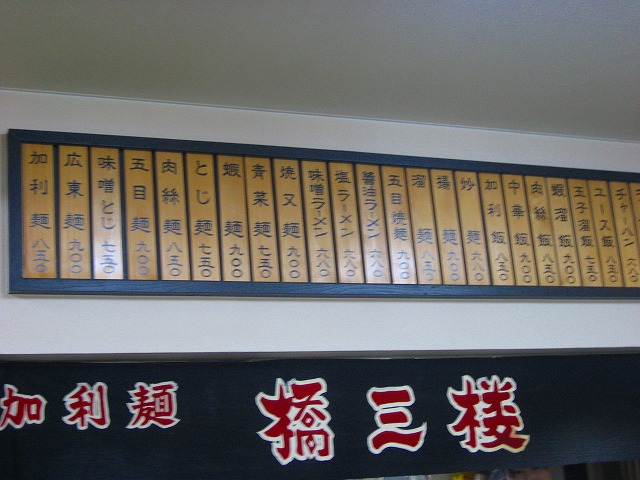 加利麺 八五〇
広東麺 九〇〇
味噌とじ 七五〇
五目麺 九〇〇
肉絲麺 八五〇
とじ麺 七五〇
蝦麺 九〇〇
青菜麺 七五〇
焼叉麺 九〇〇
味噌ラーメン 六八〇
塩ラーメン 六八〇
醤油ラーメン 六八〇
五目焼麺 九〇〇
溜麺 八五〇
揚麺 九〇〇
炒麺 六八〇
加利飯 八五〇
中華飯 九〇〇
肉絲飯 八五〇
蝦溜飯 九〇〇
玉子溜飯 七五〇
ユース飯 八五〇
チャーハン
加利麺 橋三楼